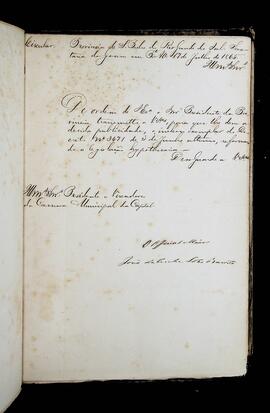 Circular. Provincia de S. Pedro do Rio Grande do Sul. Secre-
taria do governo em P.to Al. 17 de Julho de 1865.
Illmos Snrs.
De ordem do Exo. e Snr. Presidente da Pro-
vincia, transmitto a VSas para que lhe dem a
devida publicidade, o incluso exemplar do De-
creto Nº 3471 de 3 de Junho ultimo, reforman-
do a legislação hypothecaria.
Deos Guarde a VSas
Illmos Snrs. Presidente e Vereadores
da Camara Municipal da Capital
O Official Maior
João da Cunha Lobo Barreto